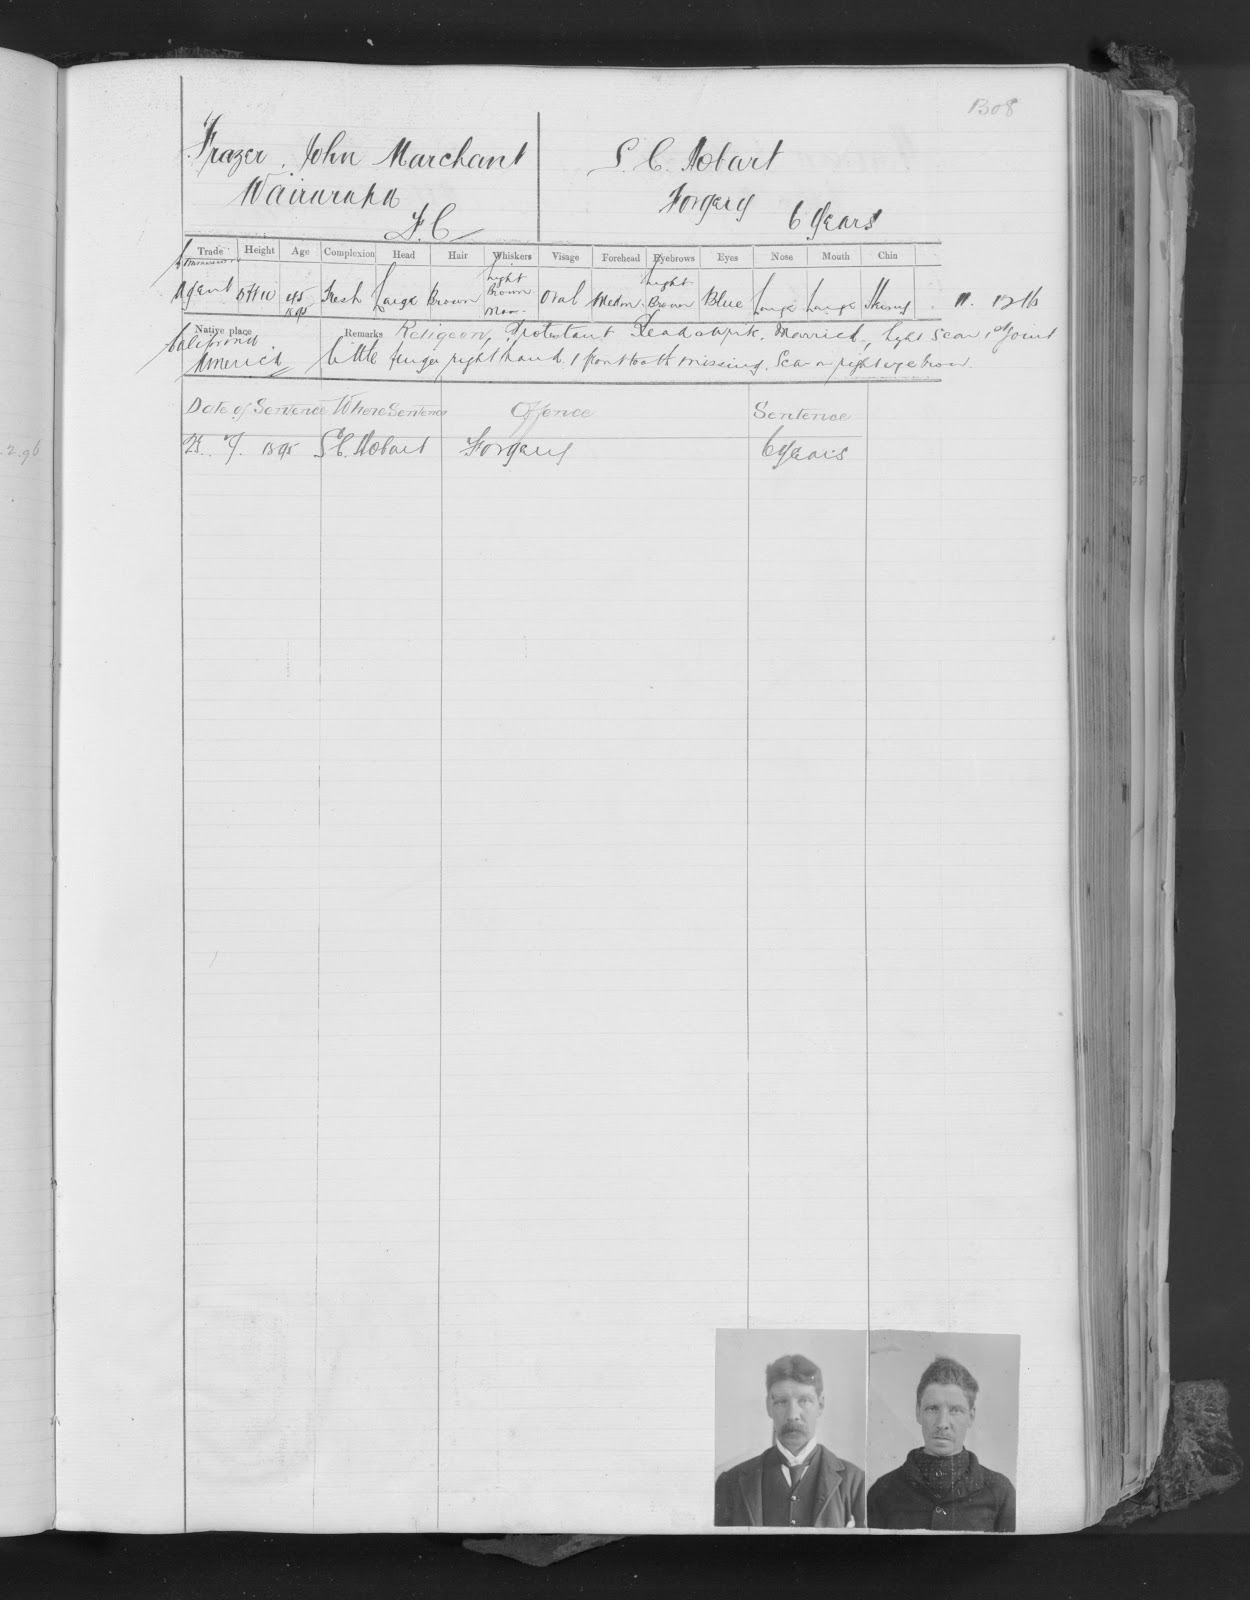 308
Frazer, John Marchant
S. C. Hobart
Wairarapa
Forgery
6 years
F.C
Trade Height Age Complexion Head Hair Whiskers Visage Forehead Eyebrows Eyes Nose Mouth Chin
Commission Light Light
Agent 5ft10 45 Fresh Large Brown Brown Oval Medm Brown Blue Large Large
1895
Native place California Remarks Religeon, Protestant Married, light Scar 1st joint
America little finger right hand. 1 front tooth missing. Scar on right eye brow.
Date of Sentence Where Sentence Offence Sentence
7. 1895 S.C. Hobart Forgery 6 years
.2.96